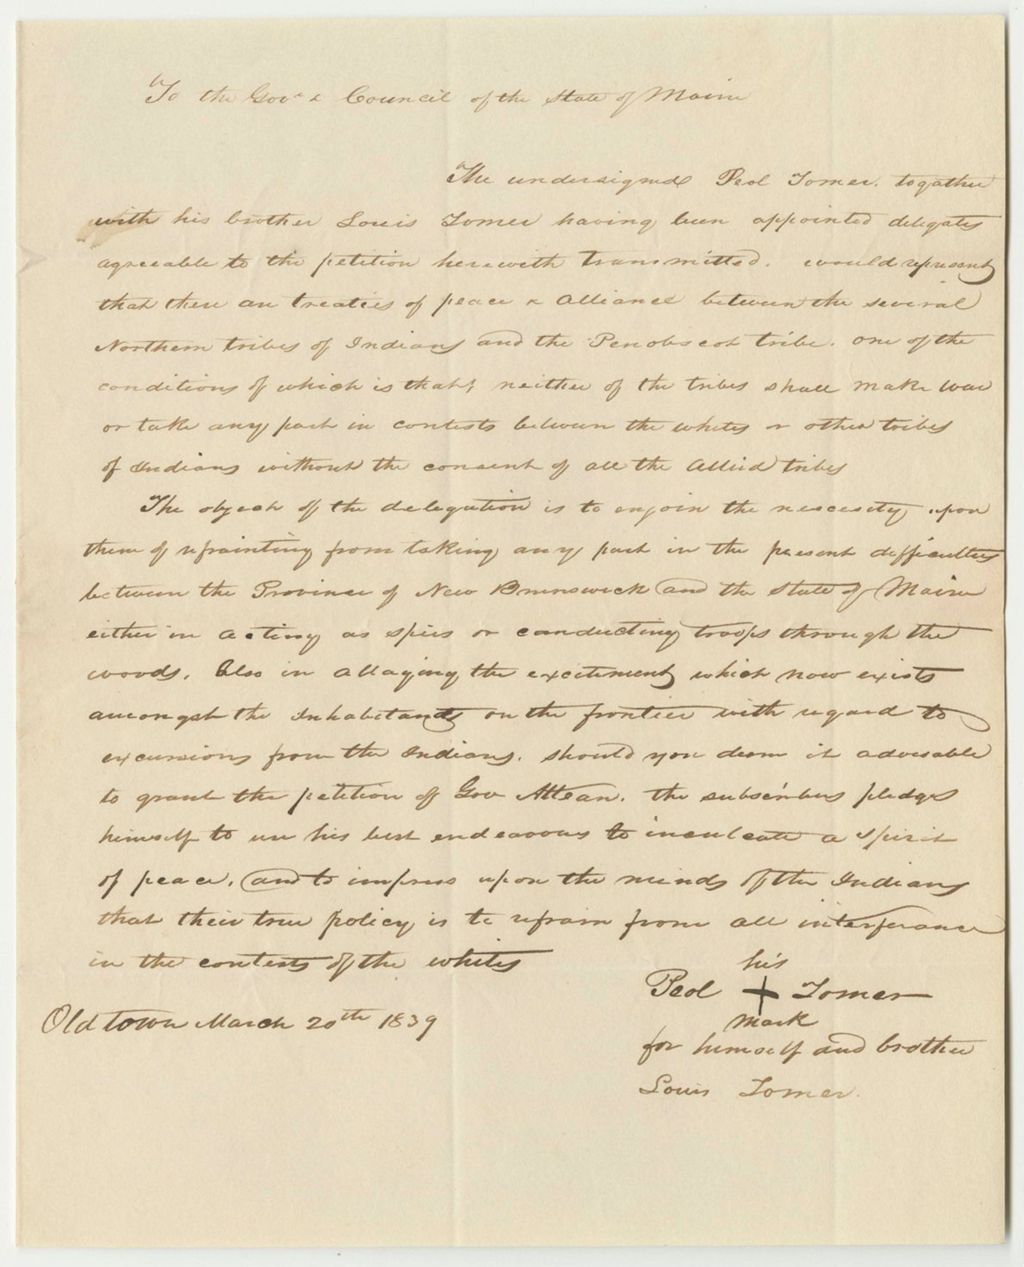 To the Govr & Council of the State of Maine
The undersigned Peol Tomer, togather
with his brother Louis Tomer having been appointed delegates
agreeable to the petition herewith transmitted. would represent
that there are treaties of peace & alliance between the several
Northern tribes of Indians and the Penobscot tribe. one of the
conditions of which is that, neither of the tribes shall make war
or take any part in contests between the whites or other tribes
of Indians without the consent of all the allied tribes
The object of the delegation is to enjoin the necessity upon
them of refrainting from taking any part in the present difficulties
between the Province of New Brunswick and the State of Maine
either in acting as spies or conducting troops through the
woods. Also in allaying the excitement which now exists
amongst the Inhabitants on the frontier with regard to
excursions from the Indians. Should you deem it advisable
to grant the petition of Gov Attean. the subscribers pledges
himself to use his best endeavours to inculcate a spirit
of peace, and to impress upon the minds of the Indians
that their true policy is to refrain from all interferance
in the contests of the whites
his
Peol + Tomer
mark
for himself and brother
Louis Tomer.
Old town March 20th 1839